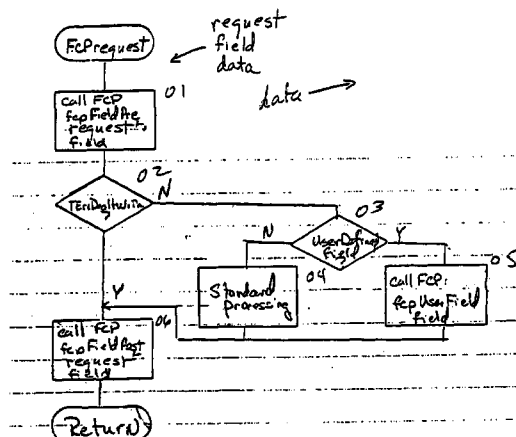 FCP request
request
field
data
data
01
call FCP
fcpFieldPre
request,
field
02
N
?
03
N
User Defined
Field
Y
04
Standard
processing
05
call FCP:
fcpUserField
field
Y
06
call FCP
fcpFieldPost
request
field
Return